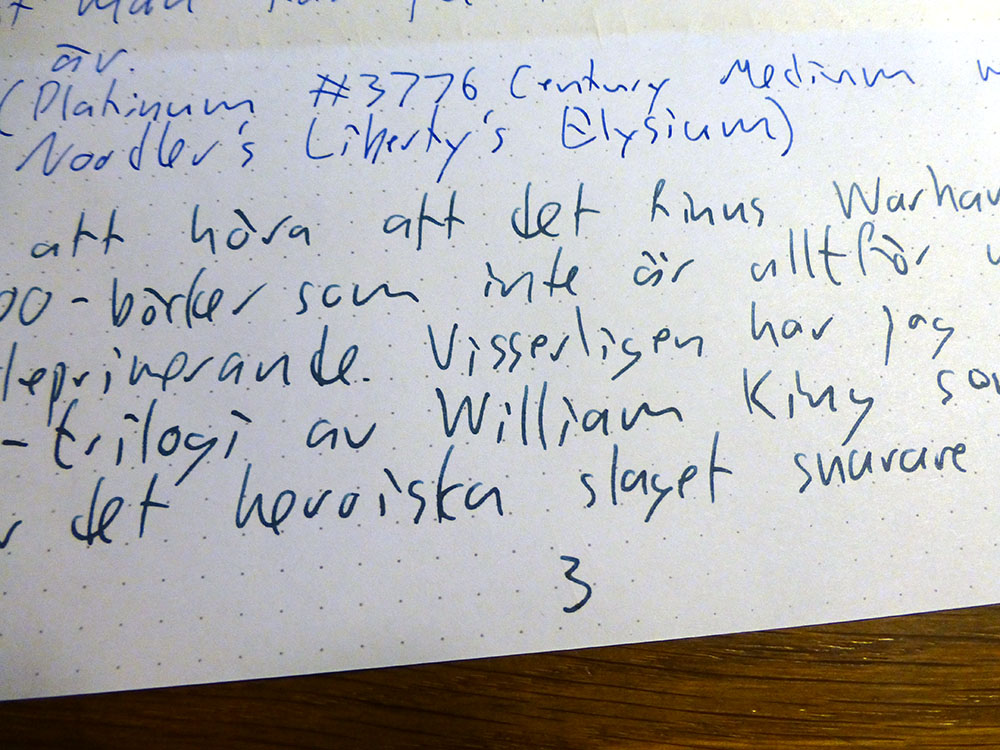 man har
är.
(Platinum #3776 Century Medium
Noodler's Liberty's Elysium)
att höra att det finns Warham
00-böcker som inte är alltför
deprimerande. Visserligen har jag
-trilogi av William King som
det heroiska slaget snarare
3